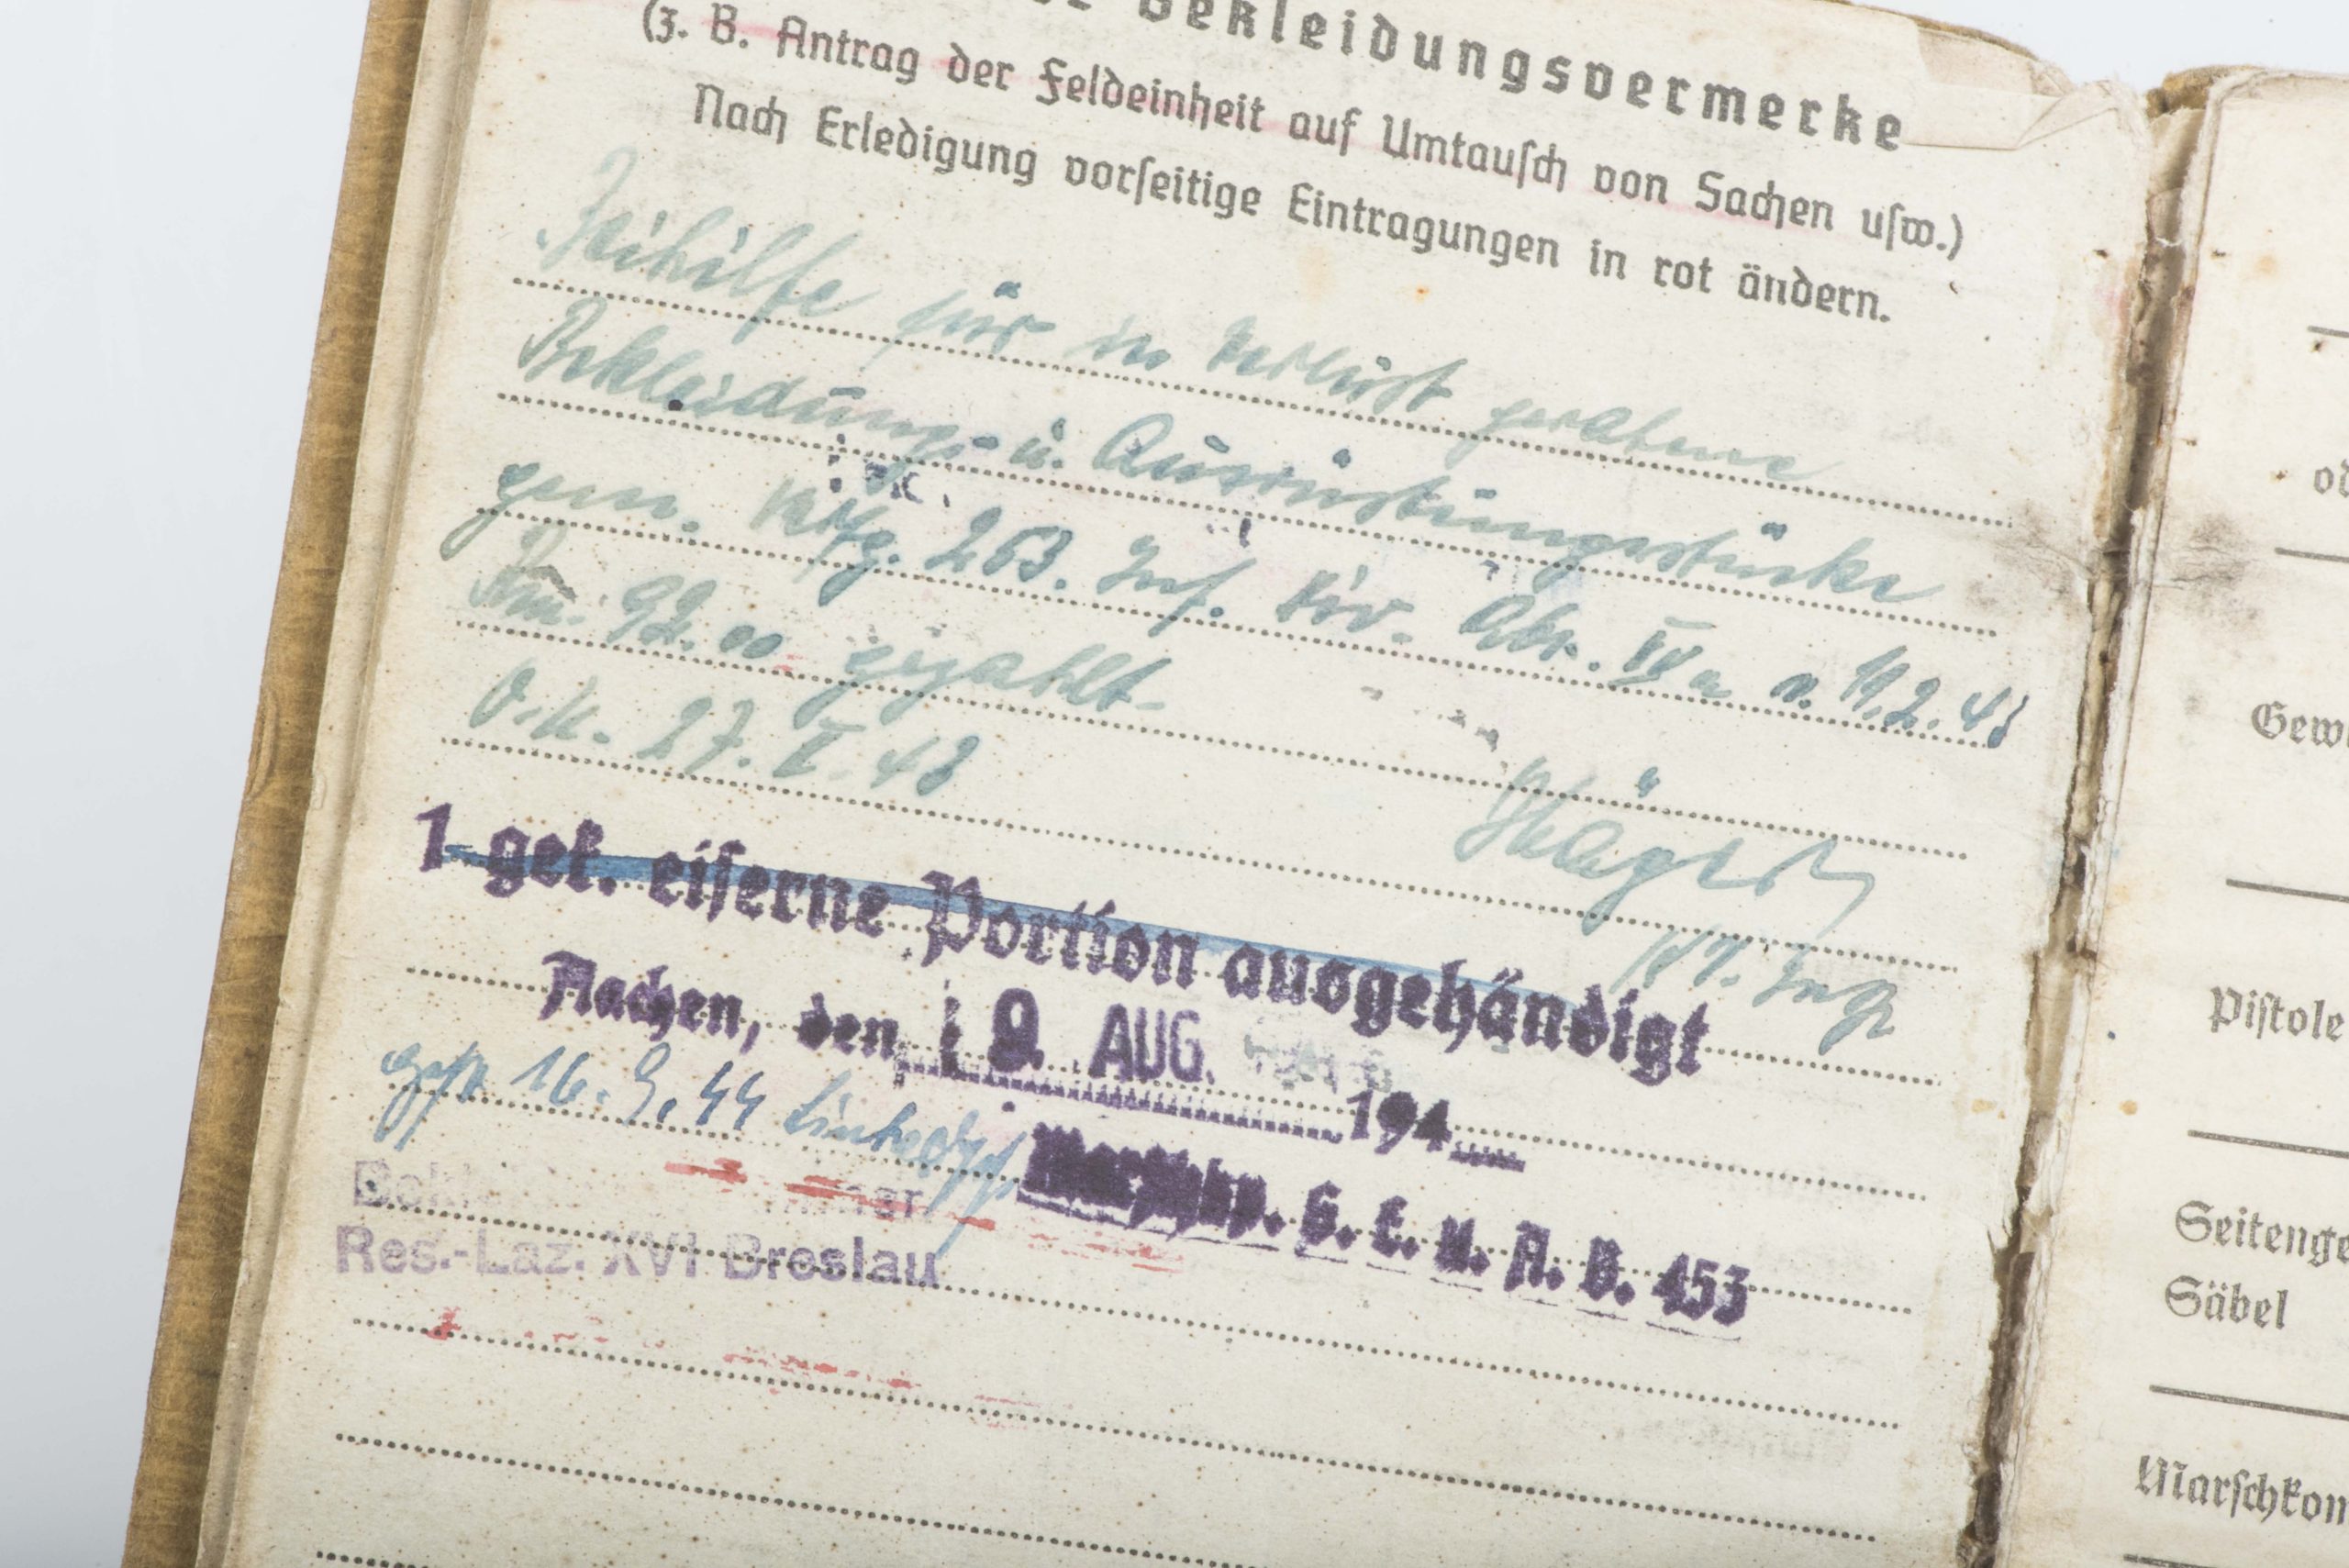 Bekleidungsvermerke
(z. B. Antrag der Feldeinheit auf Umtausch von Sachen usw.)
Nach Erledigung vorseitige Eintragungen in rot ändern.
Beihilfe für in Verlust geratene
Bekleidungs- u. Ausrüstungsstücke
gem. Vfg. 253. Inf. Div. Abt. IVa v. 19.2.43
Rm. 92.00 gezahlt.
O.U. 27. II. 43
1 gek. eiserne Portion ausgehändigt
Aachen, den 9. AUG. 194
16. 9. 44
Marschkp. G. E. u. A. B. 453
Res.-Laz. XVI Breslau
Gew
Pistole
Seitenge
Säbel
Marschkom